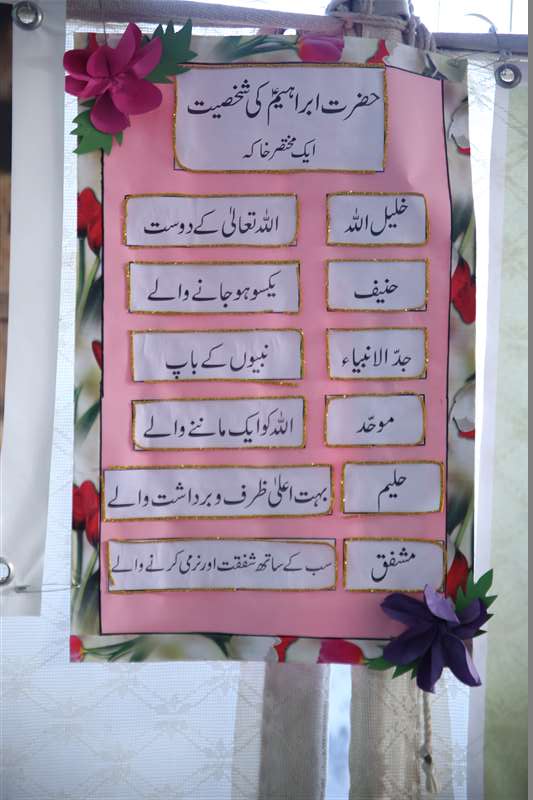 حضرت ابراہیمؑ کی شخصیت
ایک مختصر خاکہ
خلیل اللہ اللہ تعالیٰ کے دوست
حنیف یکسو ہو جانے والے
جدّ الانبیاء نبیوں کے باپ
موحّد اللہ کو ایک ماننے والے
حلیم بہت اعلیٰ ظرف و برداشت والے
مشفق سب کے ساتھ شفقت اور نرمی کرنے والے